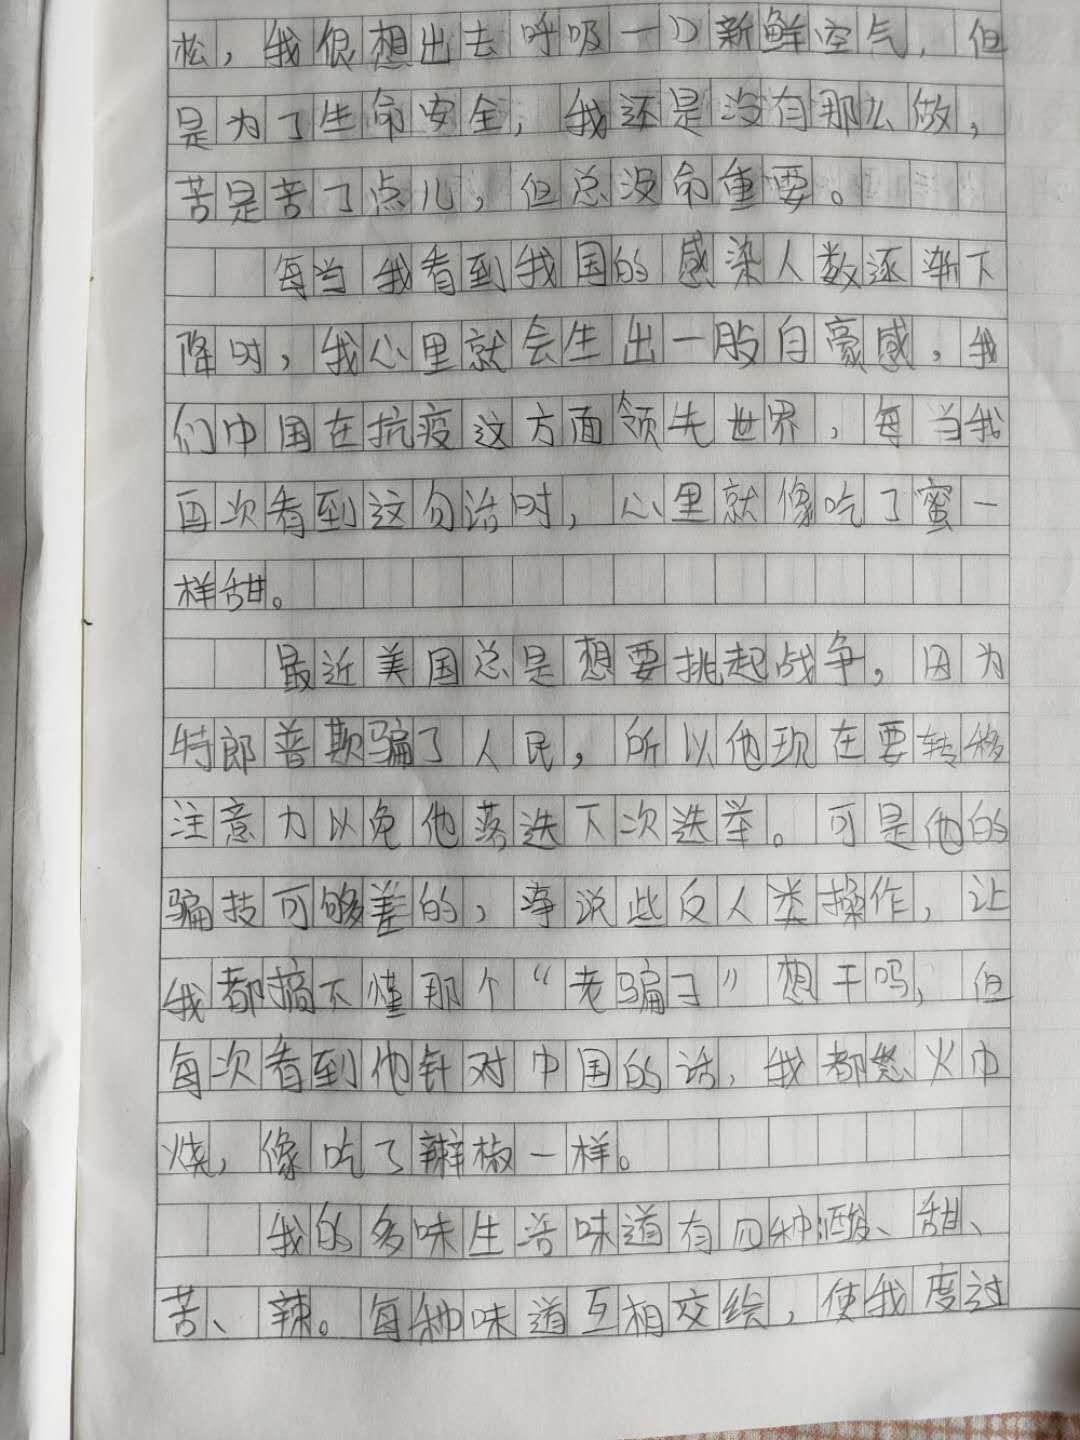 松，我很想出去呼吸一口新鲜空气，但
是为了生命安全，我还是没有那么做，
苦是苦了点儿，但总没命重要。
每当我看到我国的感染人数逐渐下
降时，我心里就会生出一股自豪感，我
们中国在抗疫这方面领先世界，每当我
再次看到这句话时，心里就像吃了蜜一
样甜。
最近美国总是想要挑起战争，因为
特郎普欺骗了人民，所以他现在要转移
注意力以免他落选下次选举。可是他的
骗技可够差的，净说些反人类操作，让
我都搞不懂那个“老骗子”想干吗，但
每次看到他针对中国的话，我都怒火中
烧，像吃了辣椒一样。
我的多味生活味道有四种酸、甜、
苦、辣。每种味道互相交绘，使我度过